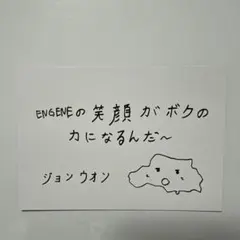 ENGENEの笑顔がボクの
力になるんだ～
ジョンウオン